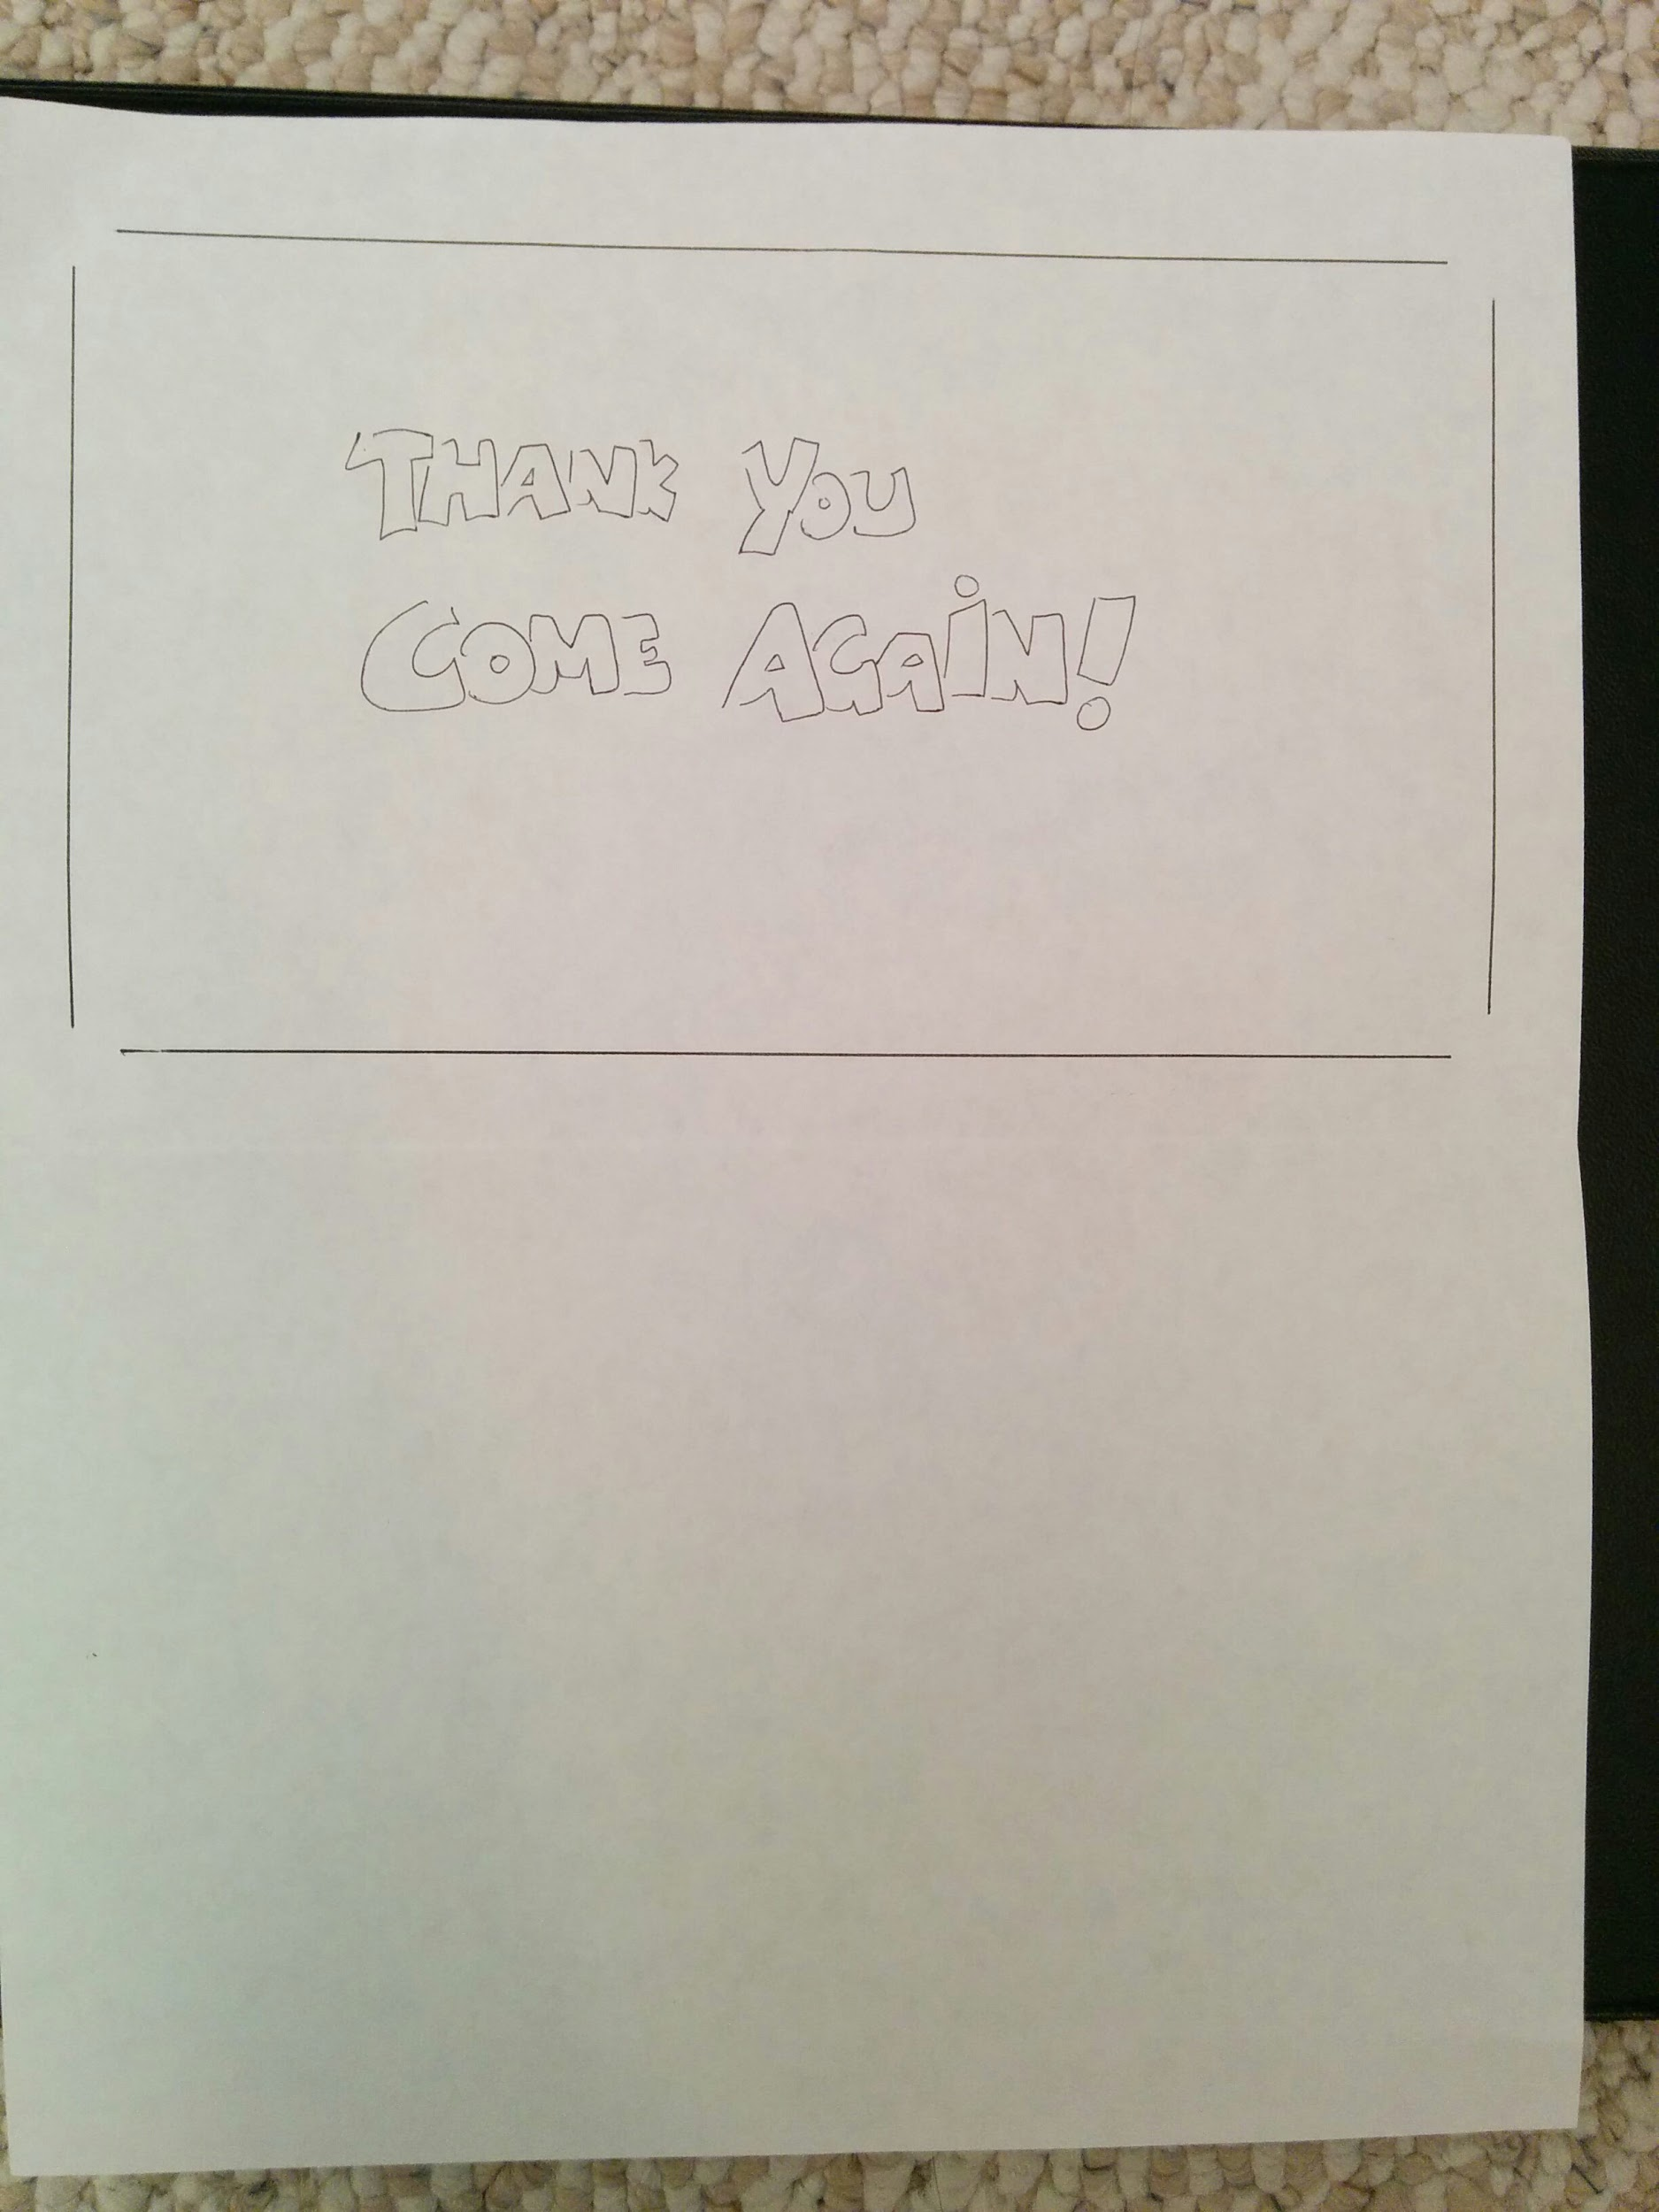 THANK YOU
COME AGAiN!